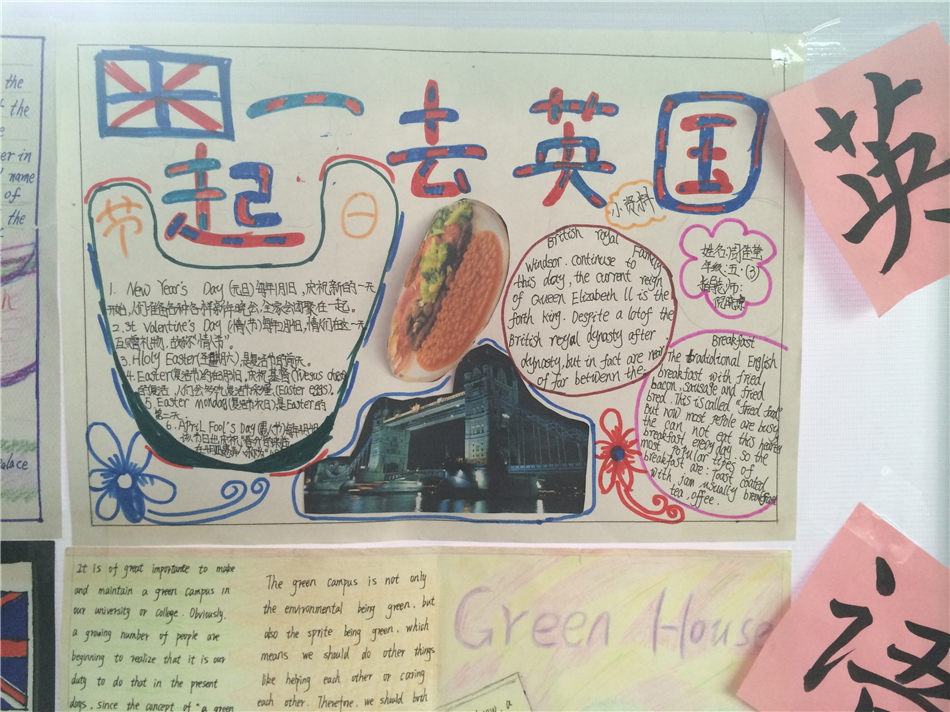 the
the
er in
name
of
the
一起去英国
节日
小资料
1. New Year's Day (元旦)每年1月1日,庆祝新的一天
开始,人们准备各种各样新年晚会,全家会团聚在一起。
2. St Valentine's Day (情人节)每年2月14日,情人们在这一天
互赠礼物,故称"情人节"。
3. Hloly Easter
4. Easter(复活节)
(Easter eggs).
5. Easter Monday
第一天。
6. April Fool's Day (愚人节)每年4月1日
British royal Family
Windsor. continue to
this day, the current reign
of Queen Elizabeth ll is the
forth king. Despite a lot of the
British royal dynasty after
dynasty, but in fact are near
of far betwenn the.
姓名:
年级:五(3)
指导师:
Breakfast
The traditional English
breakfast with fried
bacon, sausage and fried
bred. This is called "fried food"
but now most people are busy
the can not ept this heavy
breakfast every day. So the
most popular types of
breakfast are: Toast coated
with jam usually breakfast
tea, offee.
alace
It is of great importance to make
and maintain a green campus in
our university or college. Obviously,
a growing number of people are
beginning to realize that it is our
duty to do that in the present
days, since the concept of "a green
The green campus is not only
the environmental being green, but
also the sprite being green, which
means we should do other things
like helping each other or caring
each other. Therefore, we should both
Green House
英
语